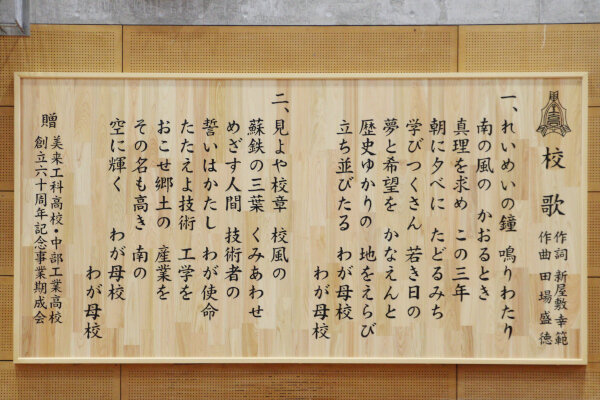 校歌
作詞 新屋敷幸範
作曲 田場盛徳
一、れいめいの鐘 鳴りわたり
南の風の かおるとき
真理を求め この三年
朝に夕べに たどるみち
学びつくさん 若き日の
夢と希望を かなえんと
歴史ゆかりの 地をえらび
立ち並びたる わが母校
わが母校
二、見よや校章 校風の
蘇鉄の三葉 くみあわせ
めざす人間 技術者の
誓いはかたし わが使命
たたえよ技術 工学を
おこせ郷土の 産業を
その名も高き 南の
空に輝く わが母校
わが母校
贈 美来工科高校・中部工業高校
創立六十周年記念事業期成会